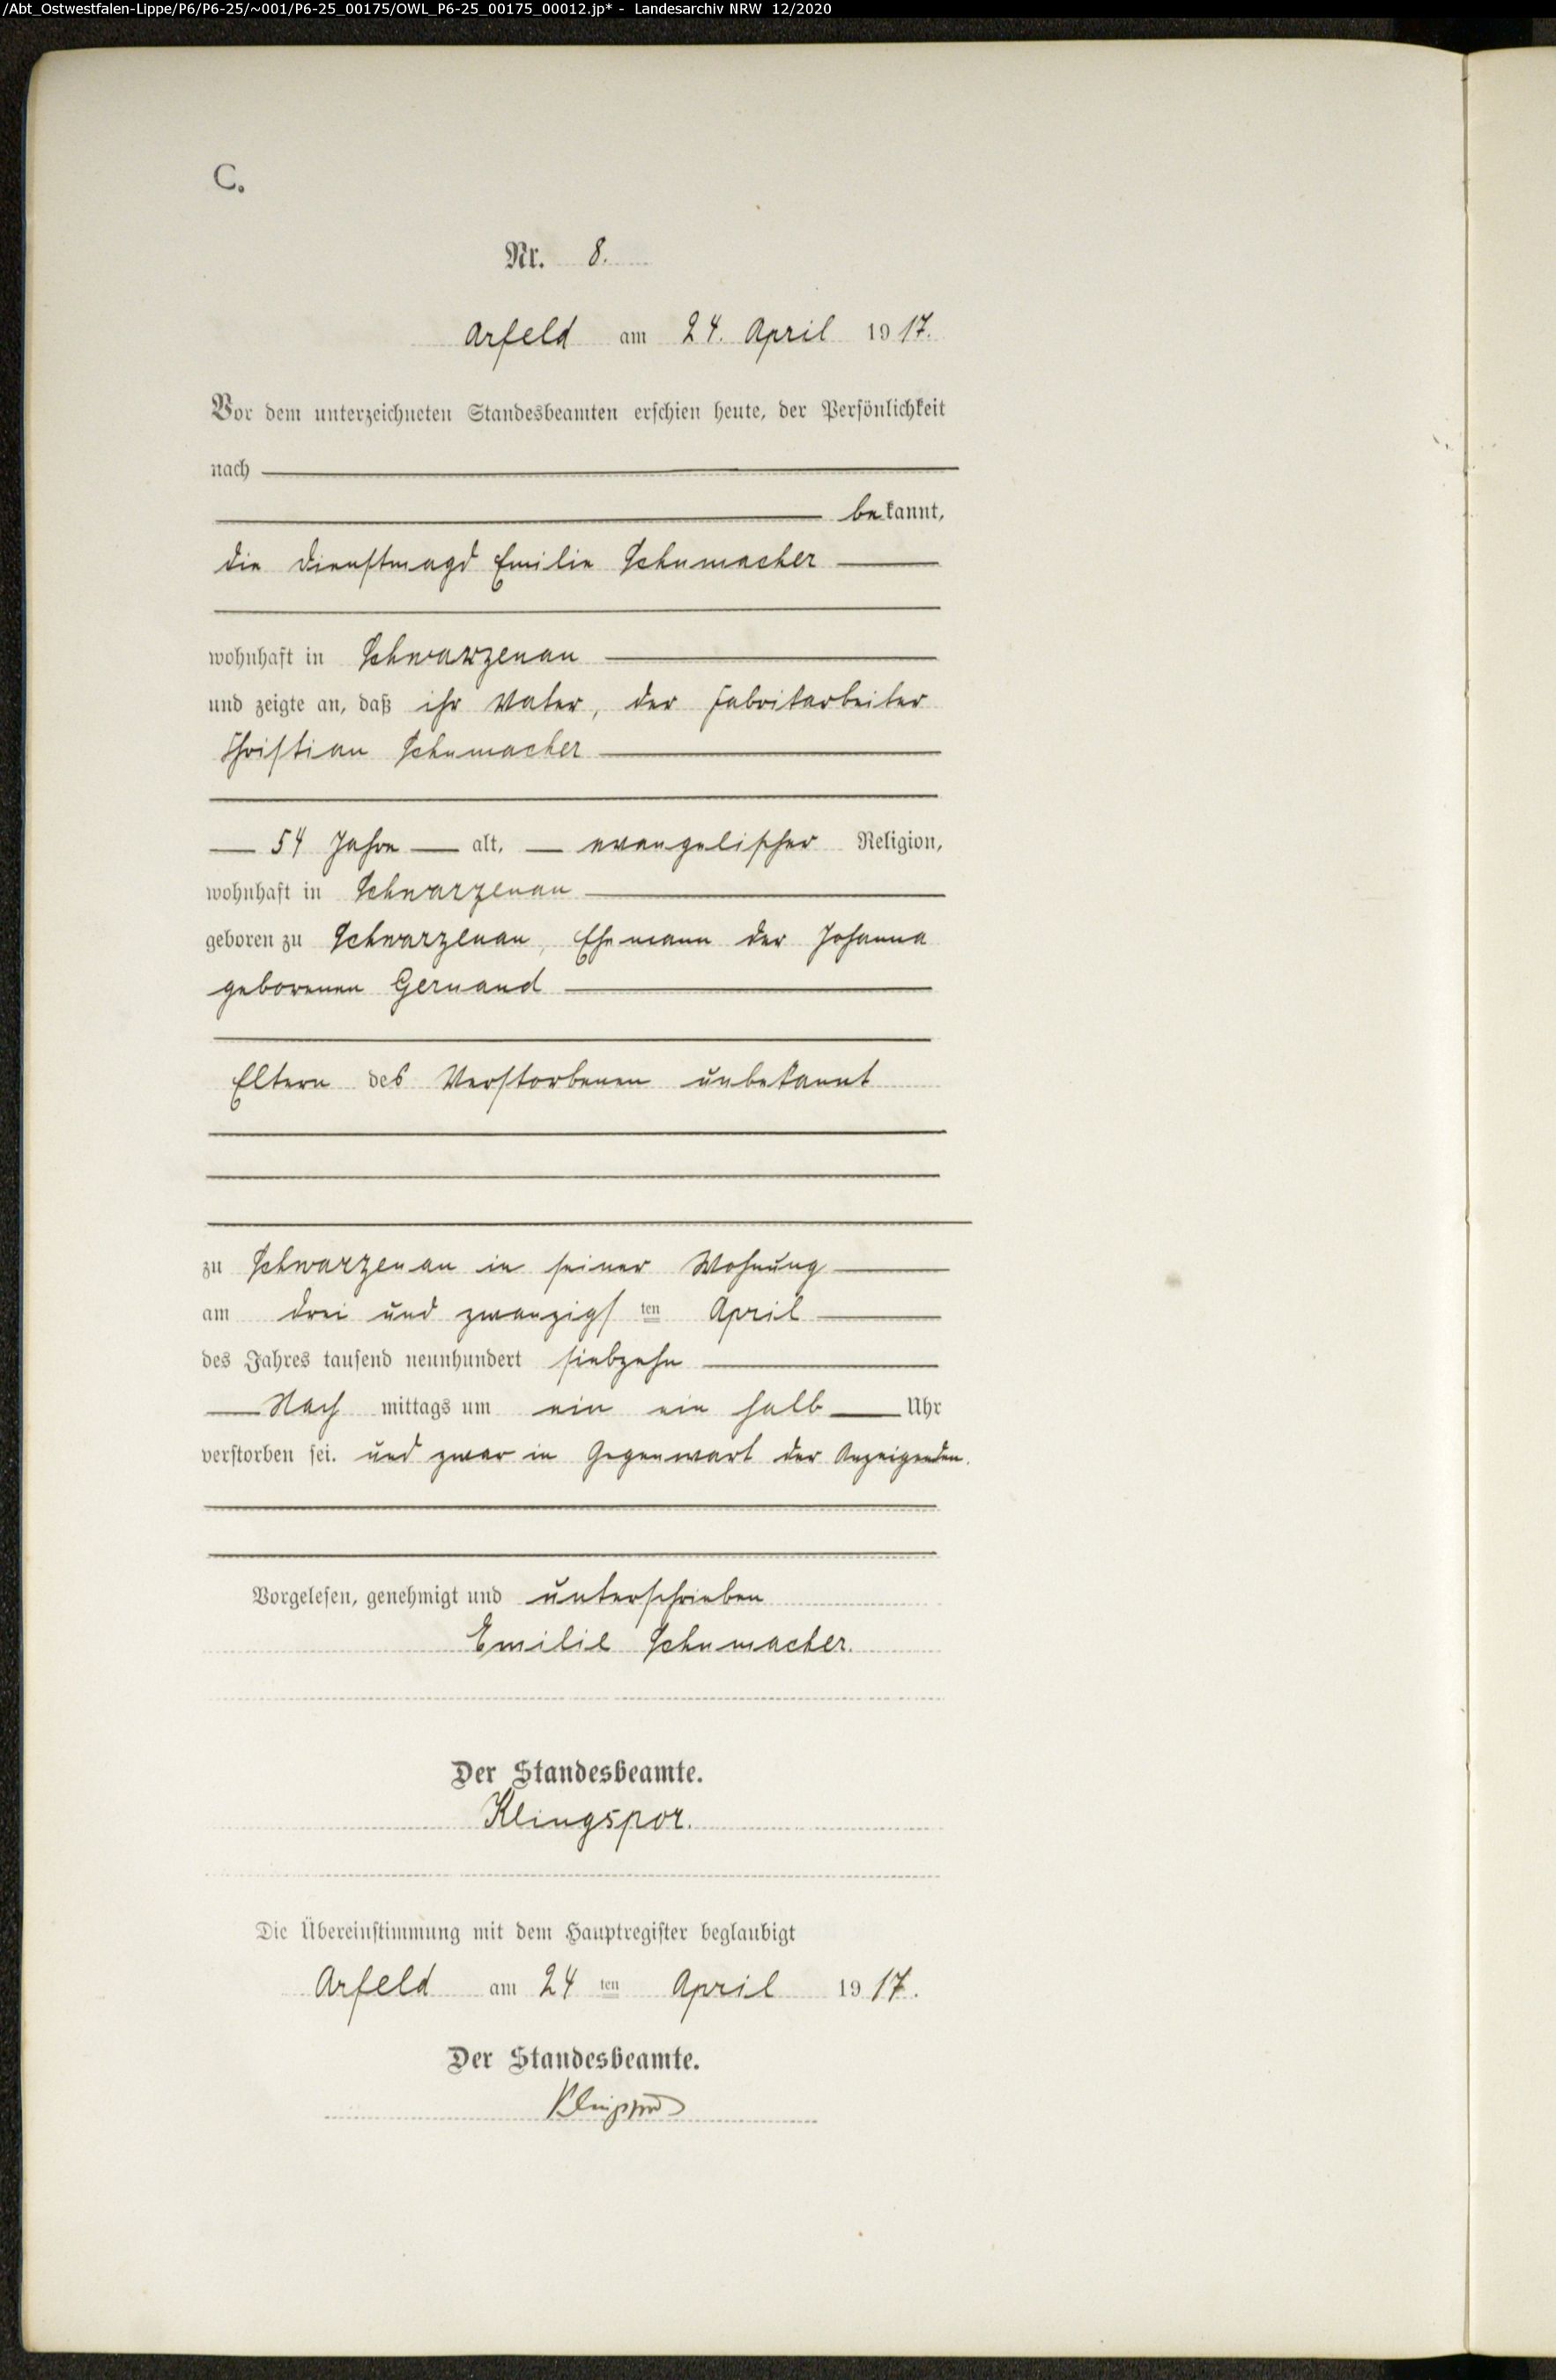 /Abt_Ostwestfalen-Lippe/P6/P6-25/~001/P6-25_00175/OWL_P6-25_00175_00012.jp* - Landesarchiv NRW 12/2020
C.
Nr. 8.
Arfeld am 24. April 1917.
Vor dem unterzeichneten Standesbeamten erschien heute, der Persönlichkeit
nach
bekannt,
die Dienstmagd Emilie Schumacher
wohnhaft in Schwarzenau
und zeigte an, daß ihr Vater, der Fabrikarbeiter
Christian Schumacher
54 Jahre alt, evangelischer Religion,
wohnhaft in Schwarzenau
geboren zu Schwarzenau, Ehemann der Johanna
geborenen Gernand
Eltern des Verstorbenen unbekannt
zu Schwarzenau in seiner Wohnung
am drei und zwanzigsten April
des Jahres tausend neunhundert siebzehn
Nach mittags um ein ein halb Uhr
verstorben sei. und zwar in Gegenwart der Anzeigenden.
Vorgelesen, genehmigt und unterschrieben
Emilie Schumacher.
Der Standesbeamte.
Klingspor.
Die Übereinstimmung mit dem Hauptregister beglaubigt
Arfeld am 24 ten April 1917.
Der Standesbeamte.
Klingspor